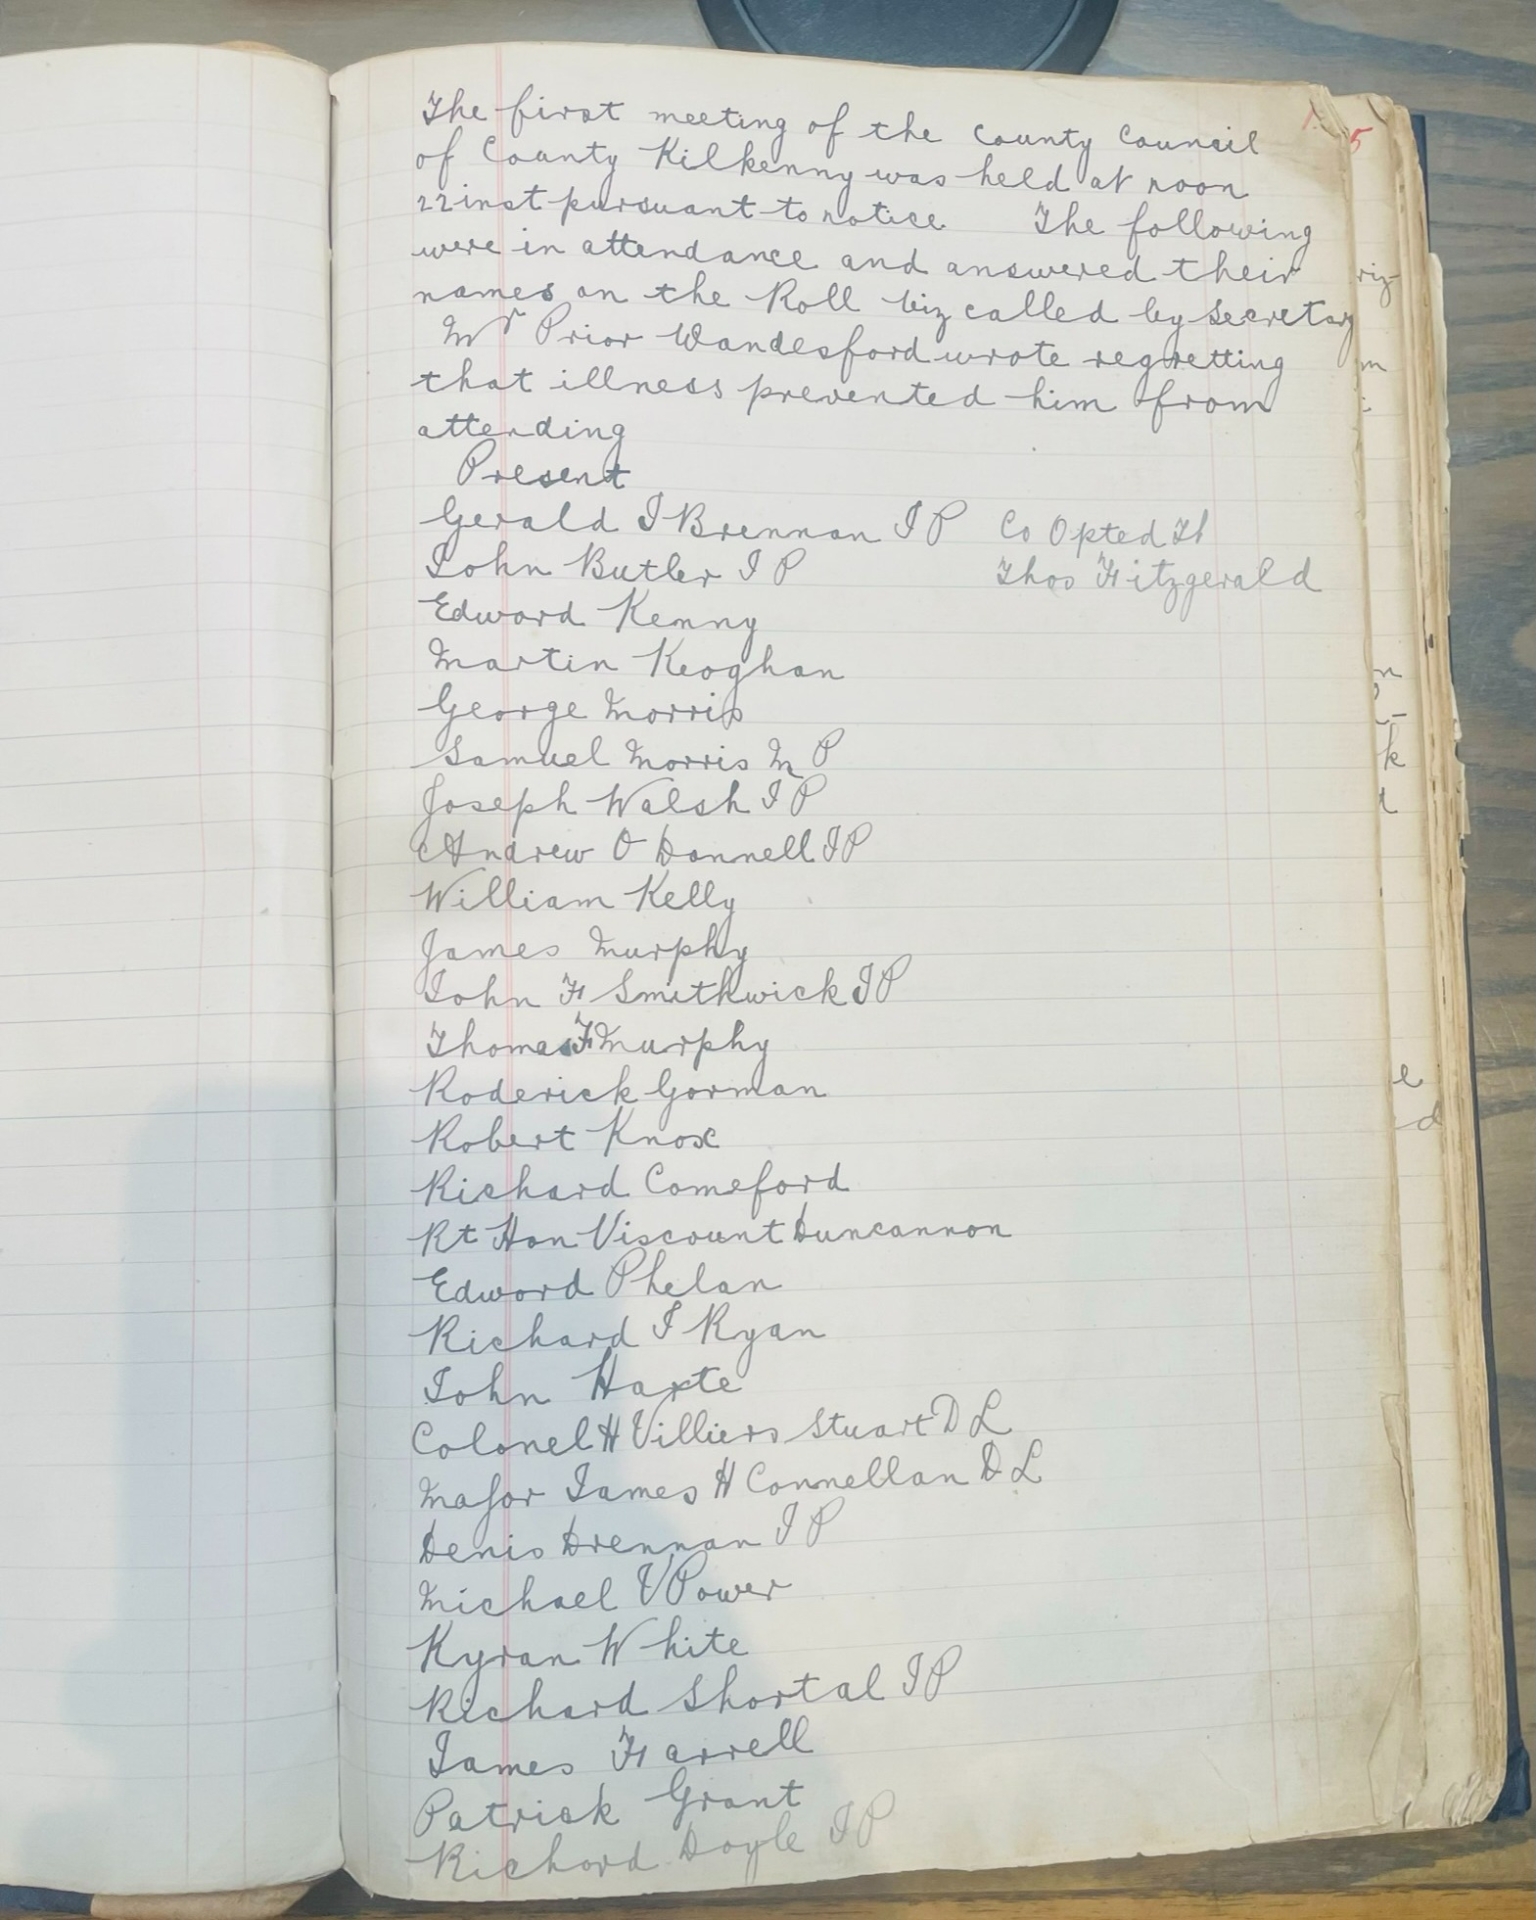 The first meeting of the County Council
of County Kilkenny was held at noon
22 inst pursuant to notice The following
were in attendance and answered their
names on the Roll viz called by Secretary
Mr Prior Wandesford wrote regretting
that illness prevented him from
attending
Present
Gerald J Brennan J P
John Butler J P
Edward Kenny
Martin Keoghan
George Morris
Samuel Morris M P
Joseph Walsh J P
Andrew O Donnell J P
William Kelly
James Murphy
John F Smithwick J P
Thomas F Murphy
Roderick Gorman
Robert Knox
Richard Comeford
Rt Hon Viscount Duncannon
Edward Phelan
Richard J Ryan
John Harte
Colonel H Villiers Stuart D L
Major James H Connellan D L
Denis Drennan J P
Michael V Power
Kyran White
Richard Shortal J P
James Farrell
Patrick Grant
Richard Doyle J P
Co Opted
Thos Fitzgerald
1
5
viz
m
n
k
t
e
d